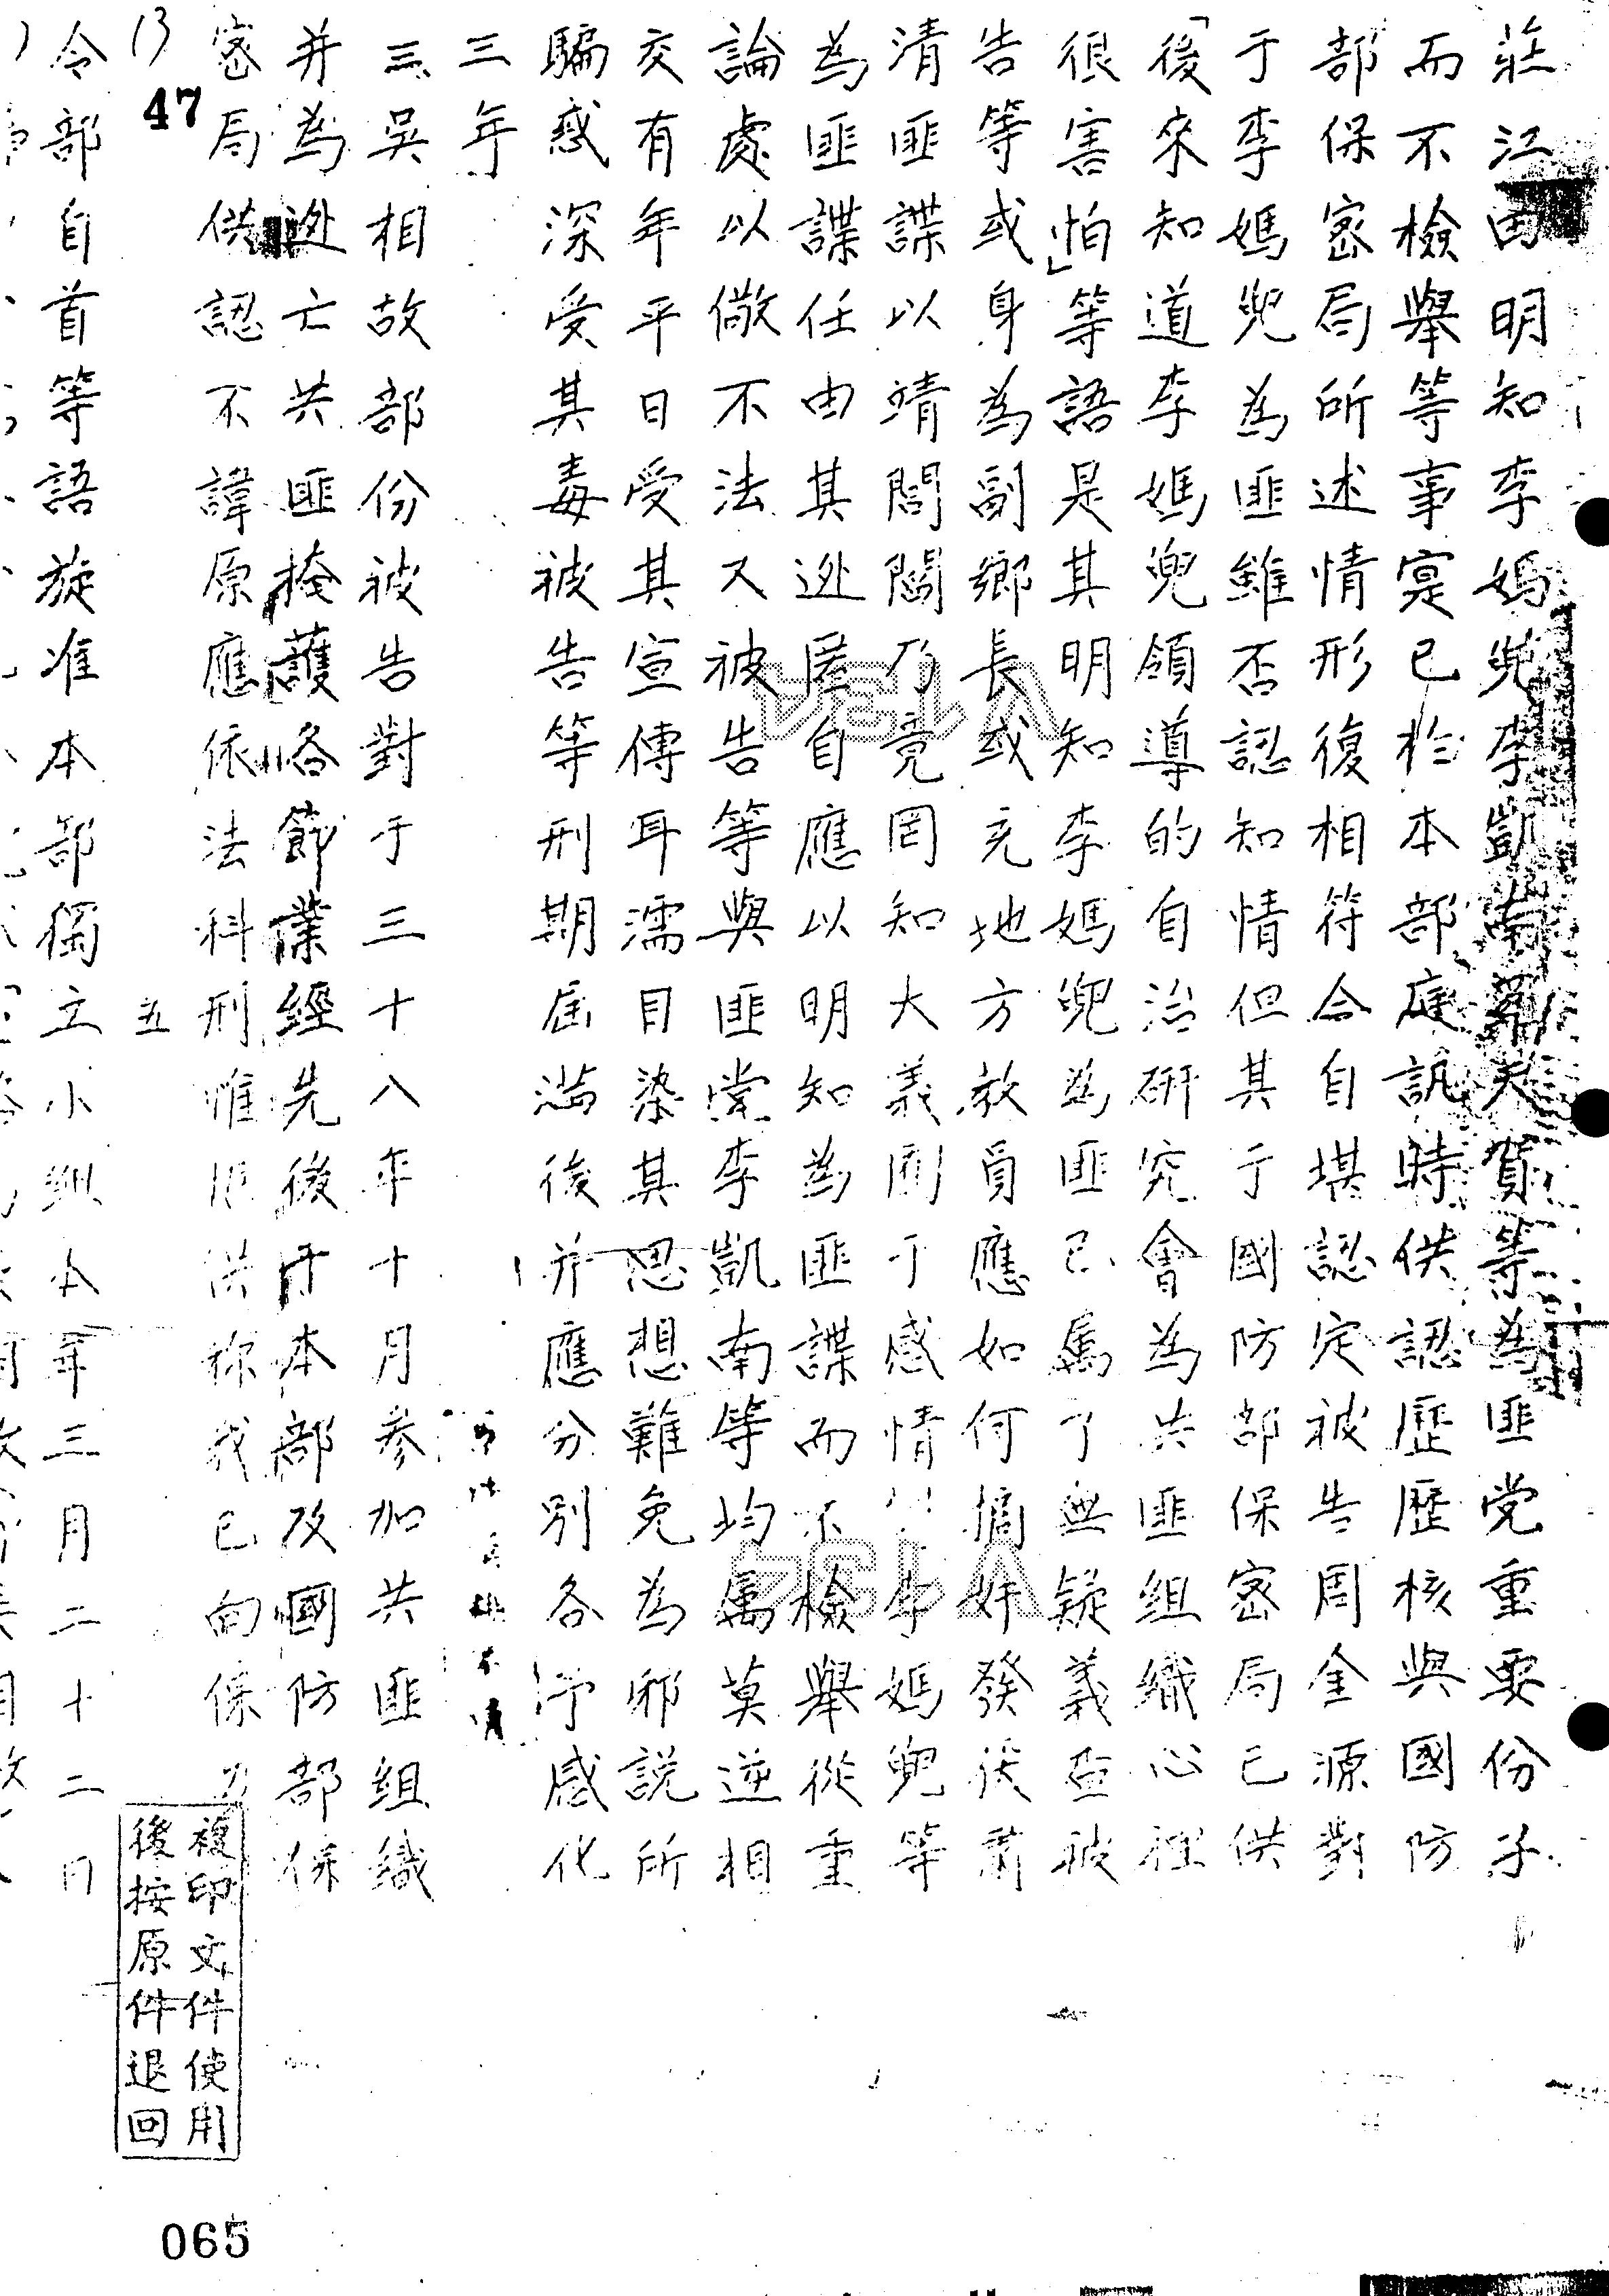 莊江田明知李媽兜李凱南蔡夫賀等為匪党重要份子
而不檢舉等事寔已於本部庭訊時供認歷歷核與國防
部保密局所述情形復相符合自堪認定被告周金源對
于李媽兜為匪雖否認知情但其于國防部保密局已供
「後來知道李媽兜領導的自治研究會為共匪組織心裡
很害怕」等語是其明知李媽兜為匪已屬了無疑義查被
告等或身為副鄉長或充地方教員應如何摘奸發伏肅
清匪諜以靖閭閻乃竟罔知大義囿于感情 李媽兜等
為匪諜任由其逃匿自應以明知為匪諜而不檢舉從重
論處以儆不法又被告等與匪党李凱南等均屬莫逆相
交有年平日受其宣傳耳濡目染其思想難免為邪說所
騙惑深受其毒被告等刑期屆滿後并應分別各予感化
三年
三、吳相故部份被告對于三十八年十月參加共匪組織
并為逃亡共匪掩護各節業經先後于本部及國防部保
密局供認不諱原應依法科刑惟 供称我已向保
13
47
五
令部自首等語旋准本部獨立小組本年三月二十二日
複印文件使用
後按原件退回
065